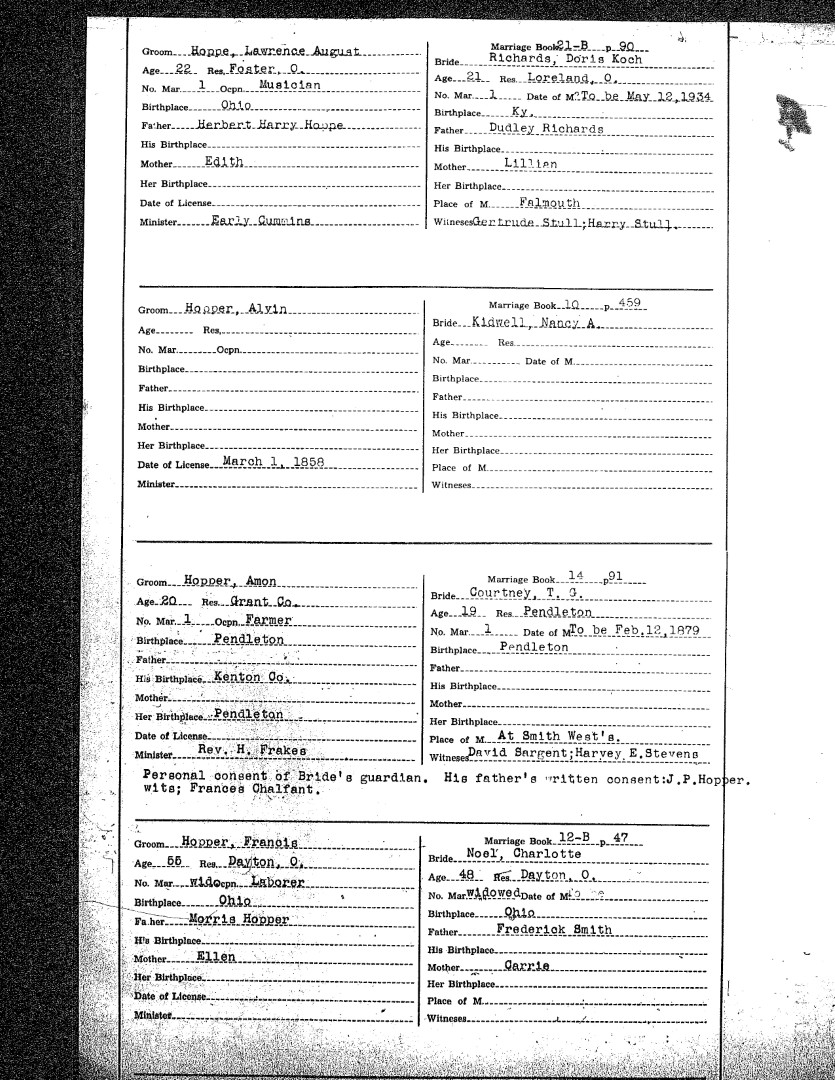 Groom Hoppe, Lawrence August
Age 22 Res. Foster, O.
No. Mar. 1 Ocpn. Musician
Birthplace Ohio
Father Herbert Harry Hoppe
His Birthplace
Mother Edith
Her Birthplace
Date of License
Minister Early Cummins
Marriage Book 21-B p. 90
Bride Richards, Doris Koch
Age 21 Res. Loreland, O.
No. Mar. 1 Date of M? To be May 12, 1934
Birthplace Ky.
Father Dudley Richards
His Birthplace
Mother Lillian
Her Birthplace
Place of M. Falmouth
Witneses Gertrude Stull; Harry Stull.
Groom Hopper, Alvin
Age Res.
No. Mar. Ocpn.
Birthplace
Father
His Birthplace
Mother
Her Birthplace
Date of License March 1, 1858
Minister
Marriage Book 10 p. 459
Bride Kidwell, Nancy A.
Age Res.
No. Mar. Date of M.
Birthplace
Father
His Birthplace
Mother
Her Birthplace
Place of M.
Witneses
Groom Hopper, Amon
Age 20 Res. Grant Co.
No. Mar. 1 Ocpn. Farmer
Birthplace Pendleton
Father
His Birthplace Kenton Co.
Mother
Her Birthplace Pendleton
Date of License
Minister Rev. H. Frakes
Marriage Book 14 p91
Bride Courtney, T. G.
Age 19 Res. Pendleton
No. Mar. 1 Date of M To be Feb.12,1879
Birthplace Pendleton
Father
His Birthplace
Mother
Her Birthplace
Place of M. At Smith West's.
Witneses David Sargent;Harvey E.Stevens
Personal consent of Bride's guardian. His father's written consent:J.P.Hopper.
wits; Frances Chalfant.
Groom Hopper, Francis
Age 55 Res. Dayton, O.
No. Mar. wid Ocpn. Laborer
Birthplace Ohio
Father Morris Hopper
His Birthplace
Mother Ellen
Her Birthplace
Date of License
Minister
Marriage Book 12-B p. 47
Bride Noel, Charlotte
Age 48 Res. Dayton, O.
No. Mar. widowed Date of M.
Birthplace Ohio
Father Frederick Smith
His Birthplace
Mother Carrie
Her Birthplace
Place of M.
Witneses